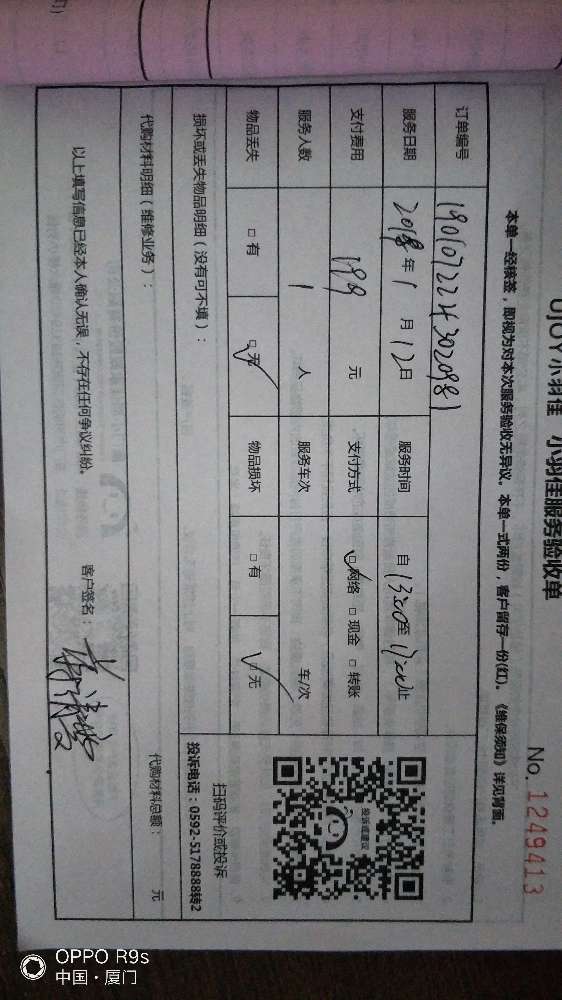 UJOY小羽佳 小羽佳服务验收单
No. 1249413
本单一经核签，即视为对本次服务验收无异议。本单一式两份，客户留存一份(红)。《维保须知》详见背面。
订单编号 190107224302981
服务日期 2019年1月12日 服务时间 自13:00至17:00止
支付费用 199元 支付方式 ☑网络 □现金 □转账
服务人数 1人 服务车次 车/次
物品丢失 □有 ☑无 物品损坏 □有 ☑无
损坏或丢失物品明细（没有可不填）：
投诉或建议
扫码评价或投诉
投诉电话：0592-5178888转2
代购材料明细（维修业务）： 代购材料总额： 元
以上填写信息已经本人确认无误，不存在任何争议纠纷。 客户签名：
OPPO R9s
中国·厦门